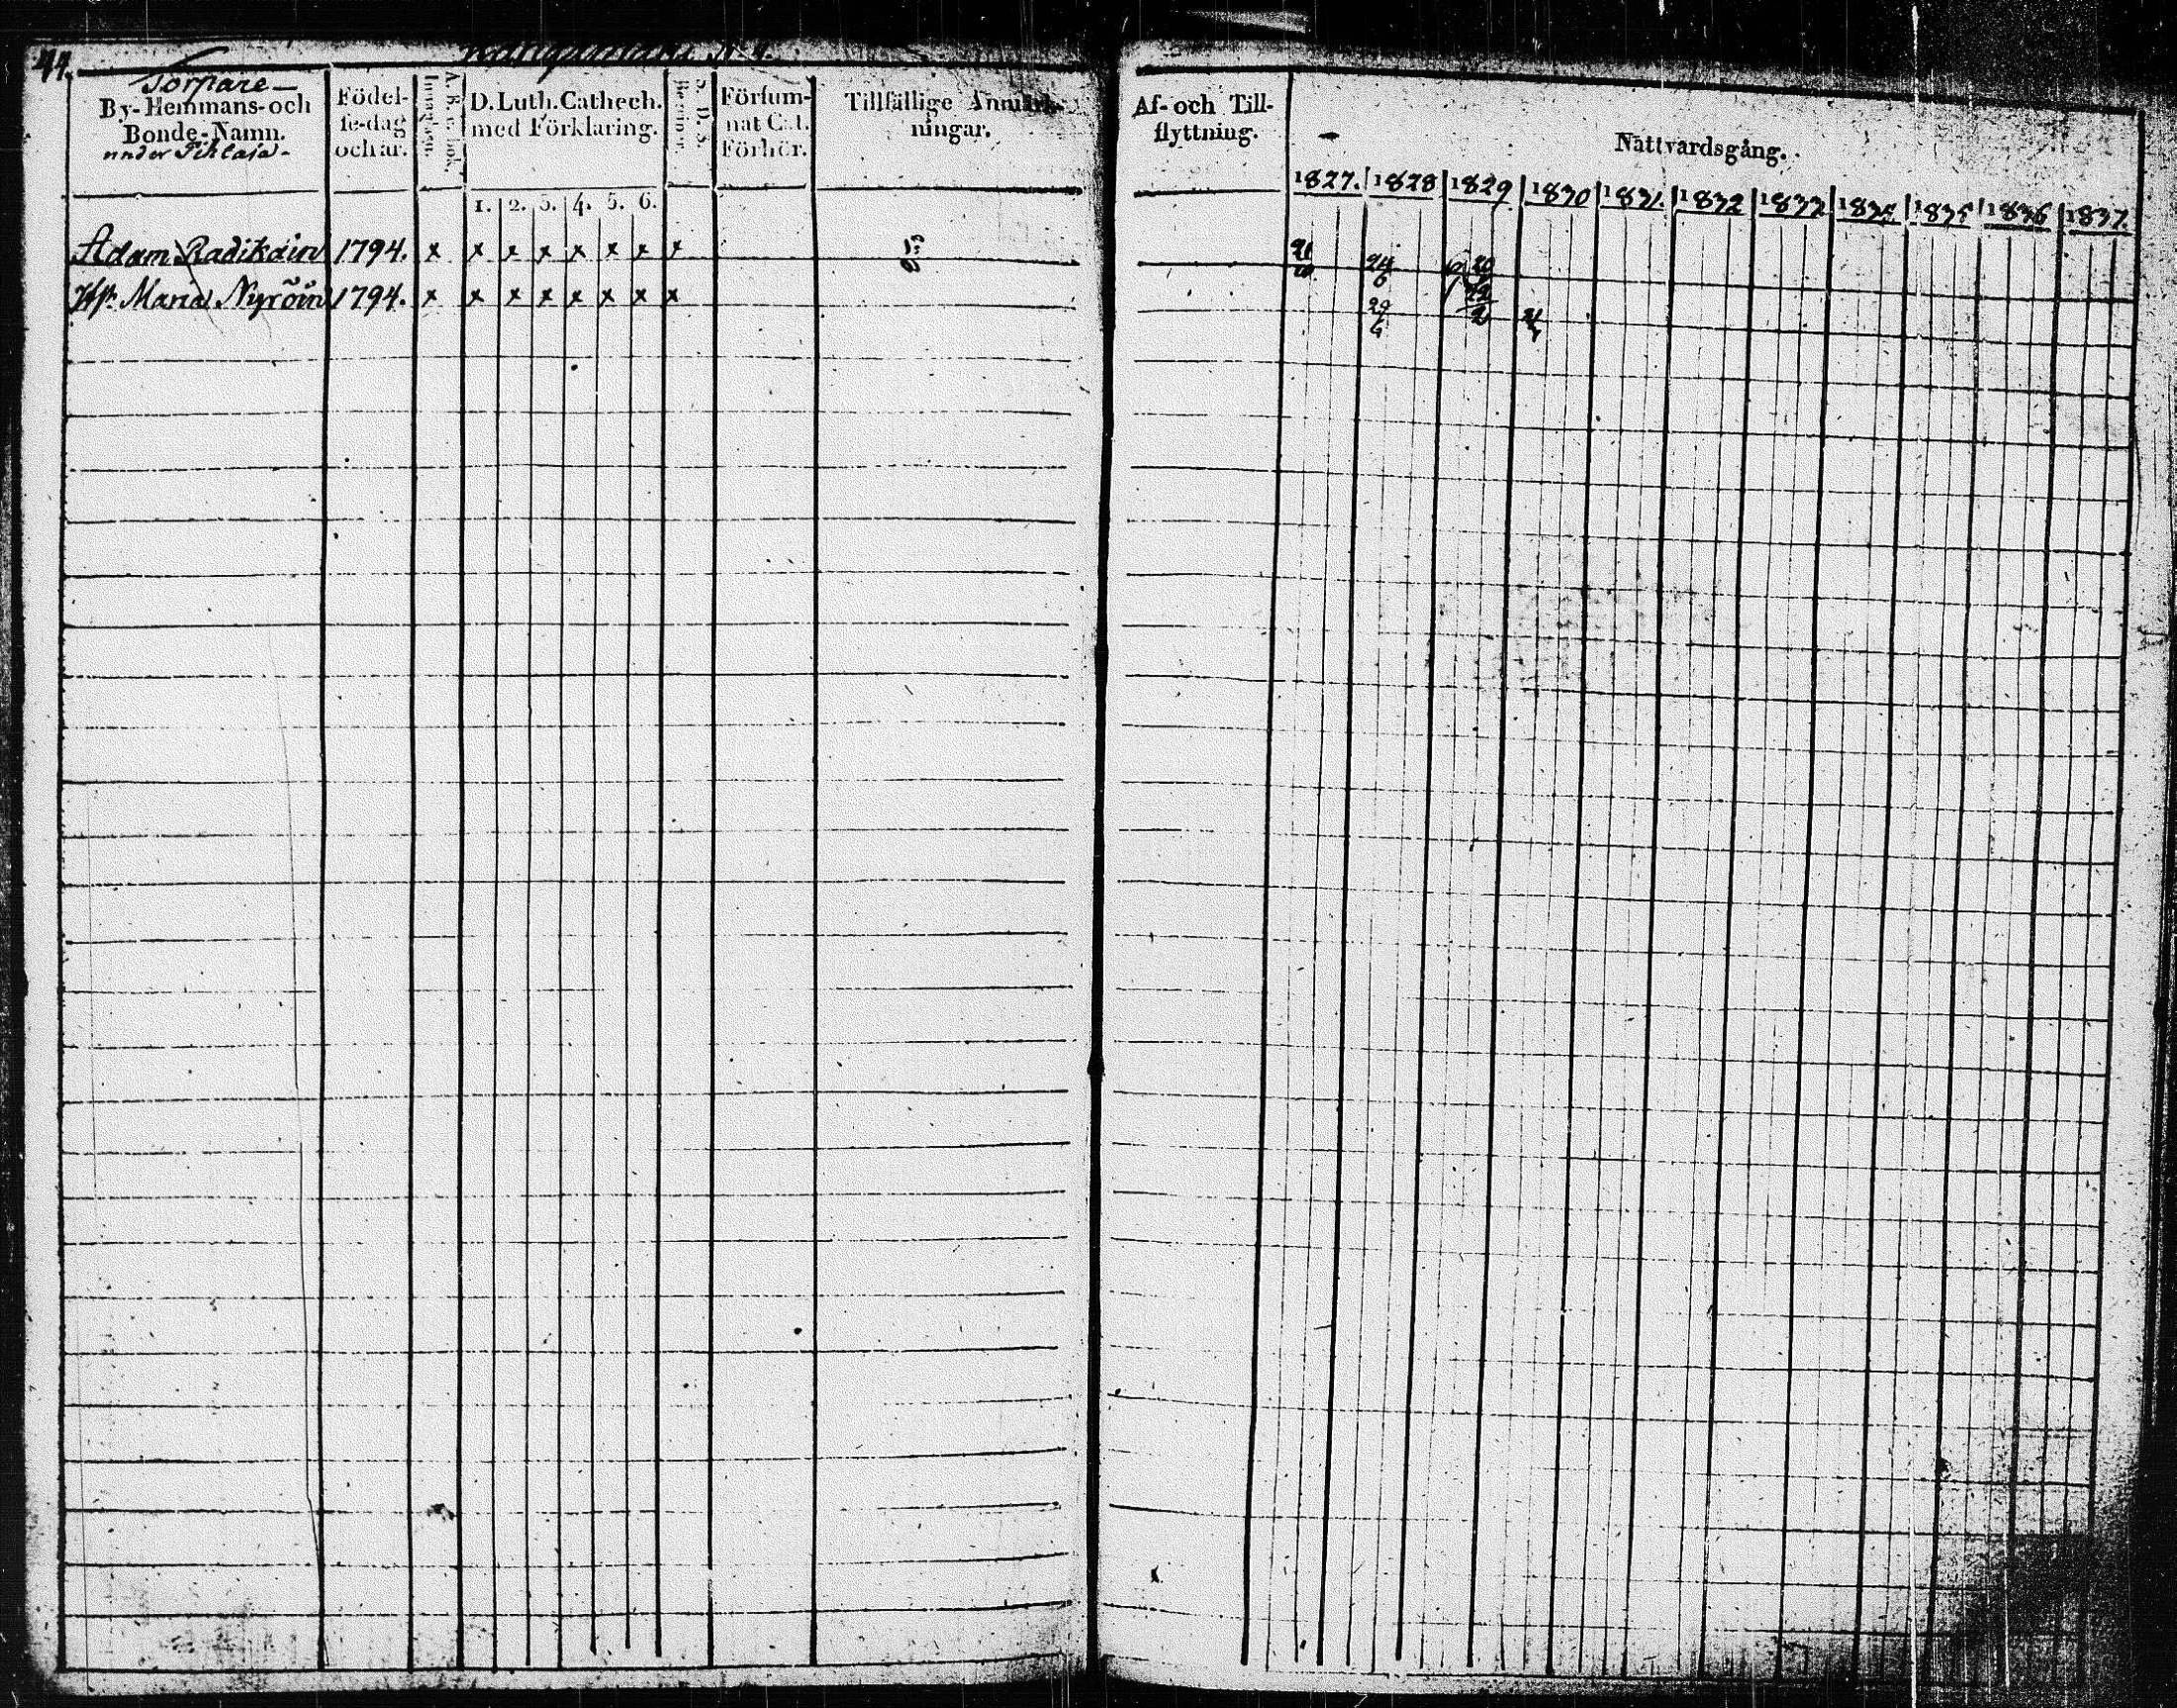 44.
N:o 4.
Torpare
By-Hemmans-och
Bonde-Namn.
under Pihlaja
Födel-
se-dag
och år.
Innanläsn.
A. B. C. bok.
D. Luth. Cathech.
med Förklaring.
1. 2. 3. 4. 5. 6.
Försum-
nat Cat.
Förhör.
Tillfällige Anmärk-
ningar.
Af- och Till-
flyttning.
Nattvardsgång.
1827. 1828 1829 1830 1831. 1832 1833 1834 1835 1836 1837.
Adam Radikain 1794. x x x x x x x x
H:n Maria Nyröin 1794. x x x x x x x x